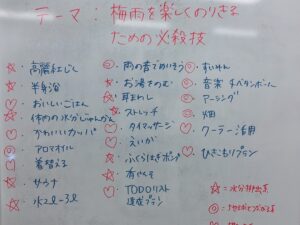 テーマ：梅雨を楽しくのりきる
ための必殺技
☆・高麗紅じん
☆・半身浴
♡・おいしいごはん
☆・体内の水分じゅんかん
♡・かわいいカッパ
◎・アロマオイル
♡・着替える
☆・サウナ
☆・水2L〜3L
◎・雨の音でめいそう
☆・お湯をのむ
☆・耳まわし
☆・ストレッチ
♡・タイマッサージ
♡・えいが
☆・ふくらはぎポンプ
☆・有さんそ
♡・TODOリスト
達成プラン
◎・すいみん
◎・音楽
◎・アーシング
◎・畑
♡・クーラー活用
♡・ひきこもりプラン
☆=水分排出系
◎=地球とつながる系